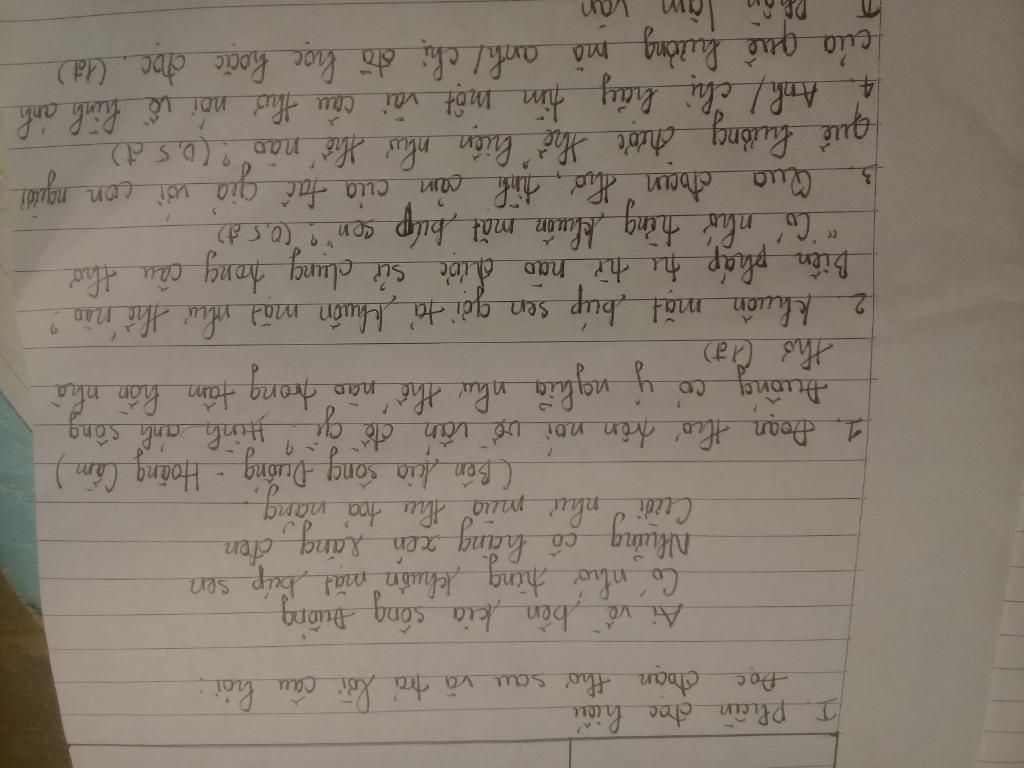 I. Phần đọc hiểu
Đọc đoạn thơ sau và trả lời câu hỏi:
Ai về bên kia sông Đuống
Có nhớ từng khuôn mặt búp sen
Những cô hàng xén răng đen
Cười như mùa thu tỏa nắng.
(Bên kia sông Đuống - Hoàng Cầm)
1. Đoạn thơ trên nói về vấn đề gì? Hình ảnh sông
Đuống có ý nghĩa như thế nào trong tâm hồn nhà
thơ (1đ)
2. Khuôn mặt búp sen gợi tả khuôn mặt như thế nào?
Biện pháp tu từ nào được sử dụng trong câu thơ
"Có nhớ từng khuôn mặt búp sen"? (0,5đ)
3. Qua đoạn thơ, tình cảm của tác giả với con người
quê hương được thể hiện như thế nào? (0,5đ)
4. Anh/ chị hãy tìm một vài câu thơ nói về hình ảnh
của quê hương mà anh/ chị đã học hoặc đọc. (1đ)
II. Phần làm văn